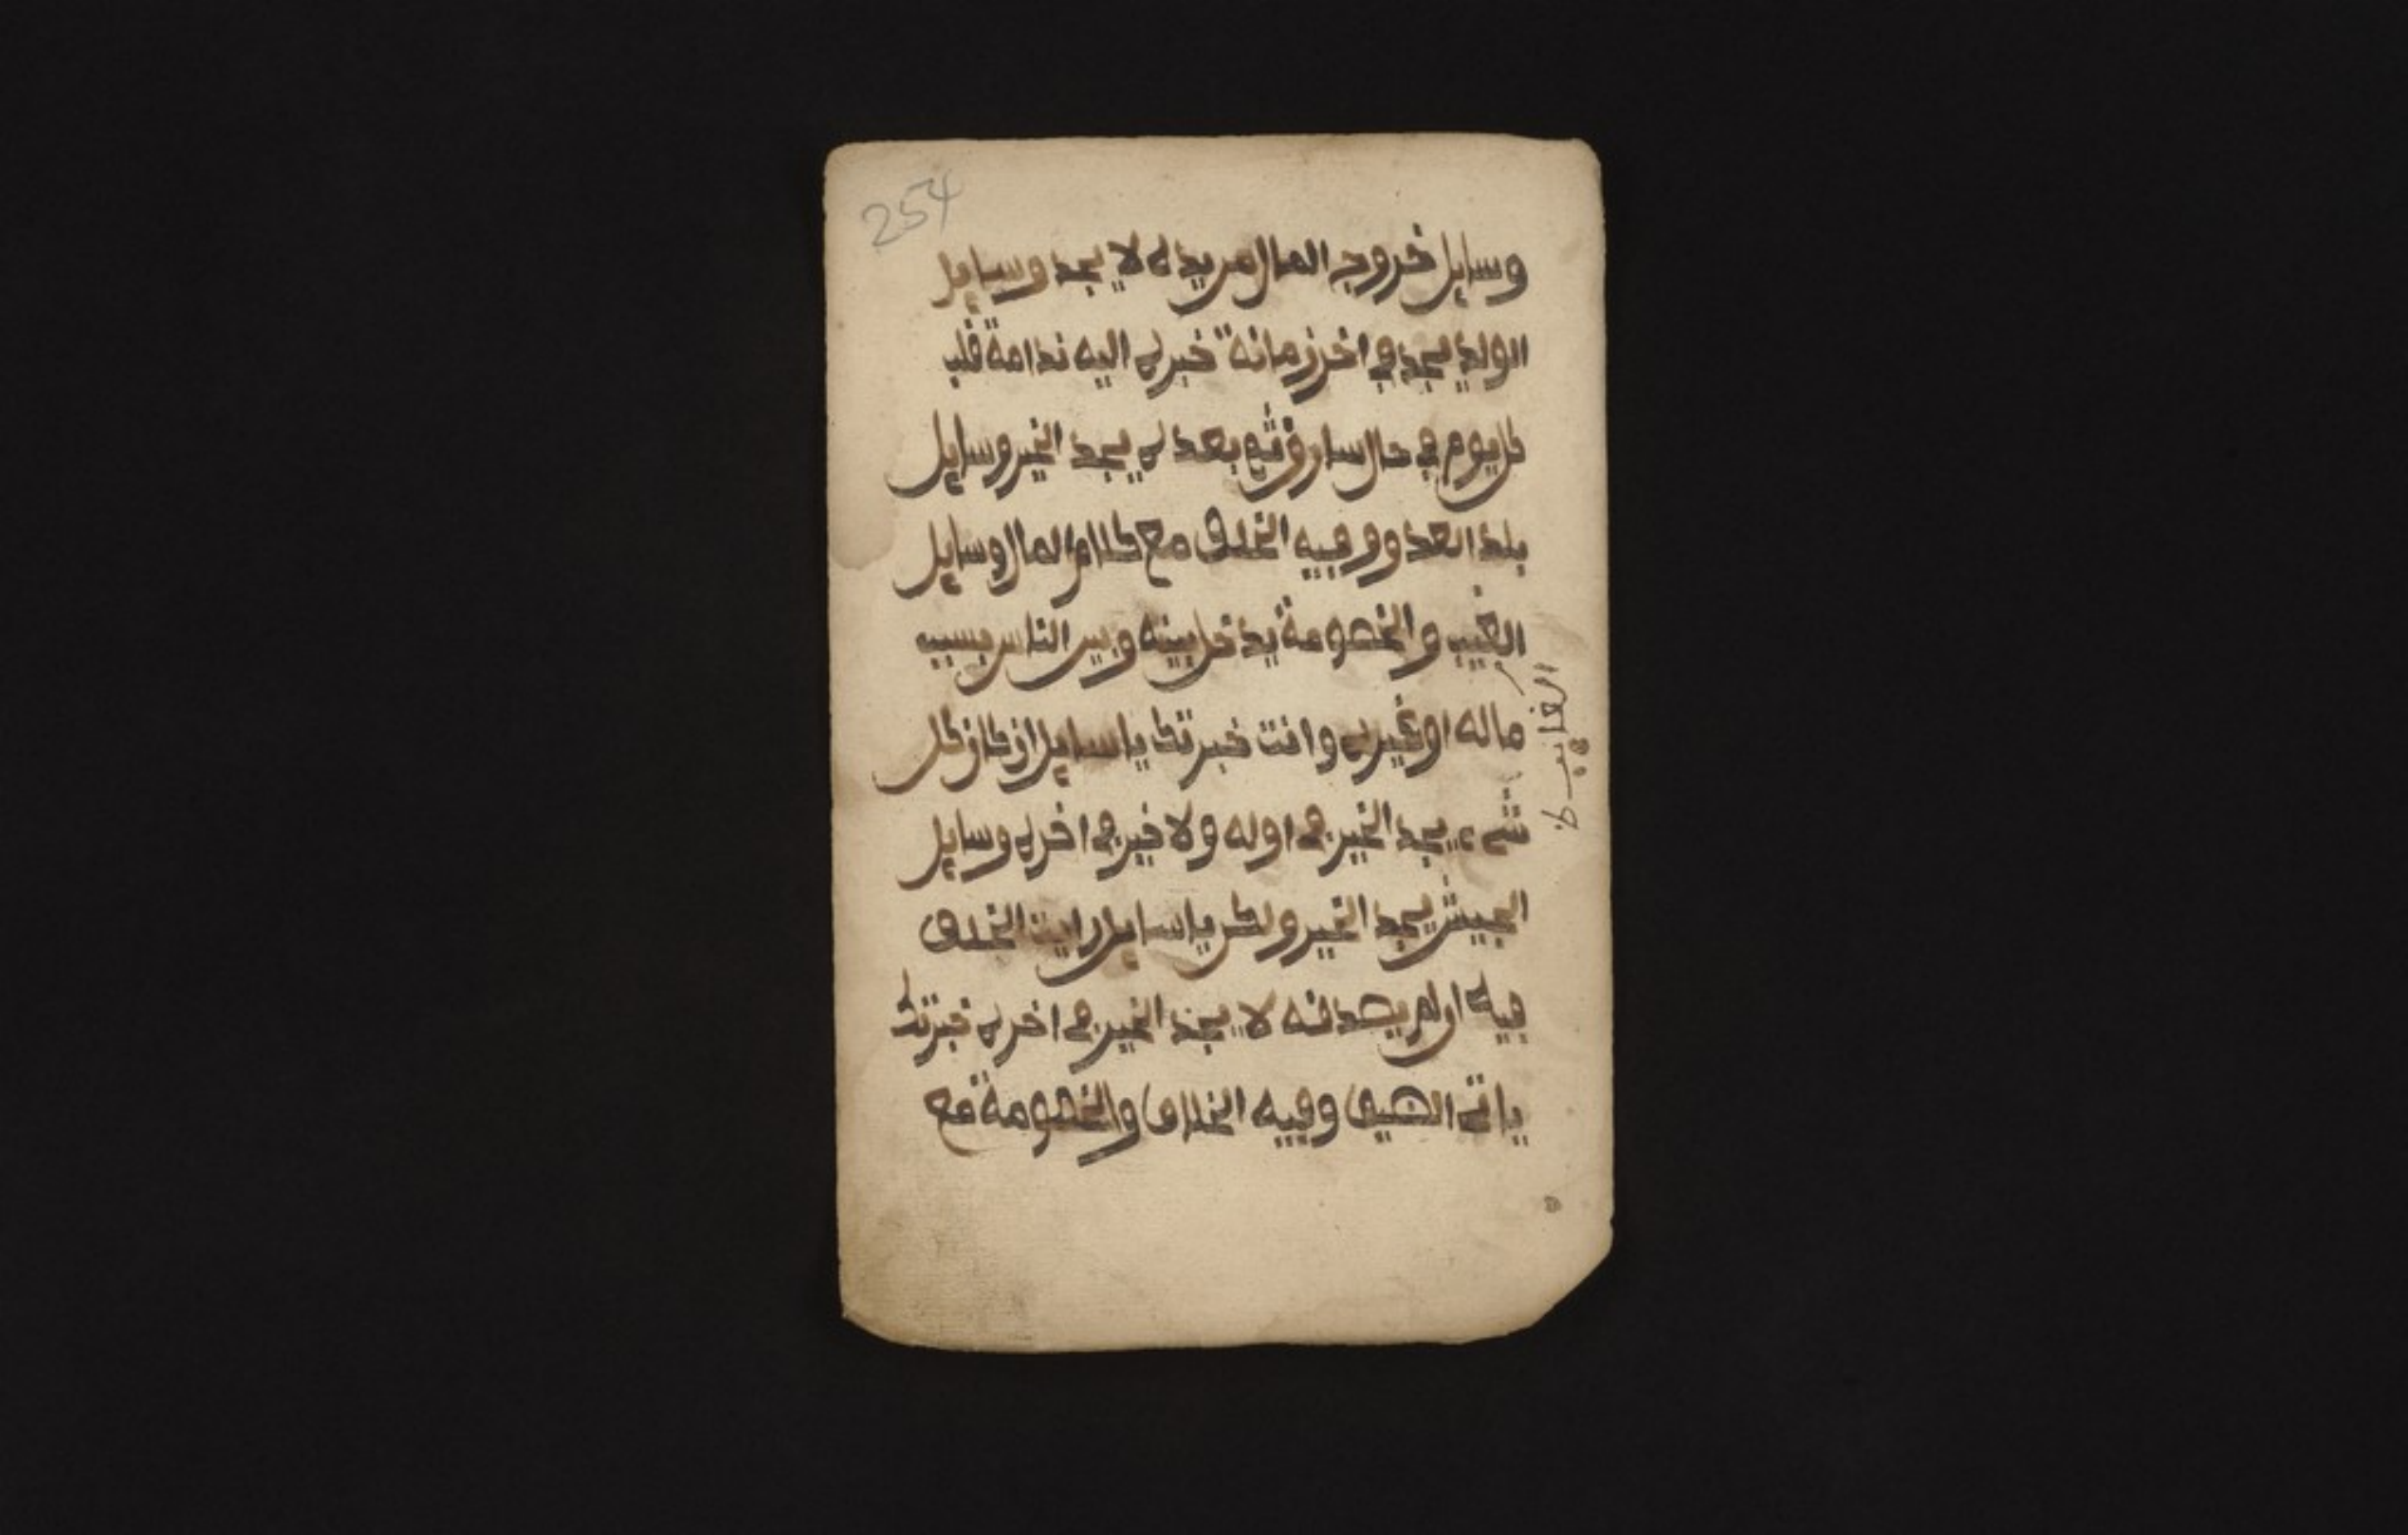 254
وسايل خروج المال من يده لا يجد وسايل
الولد يجد في اخر زمانه خبره اليه ندامة قلب
كل يوم في حال سارقته بعده يجد الخير وسايل
بلد ابعد وفيه الخلاف مع كلام المال وسايل
الغيب والخصومة يدخل بينه وبين الناس بسبب
ماله او غيره وانت خبرتك يا سايل ان كان كل
شيء يجد الخير في اوله ولا خير في اخره وسايل
الجيش يجد الخير ولكن يا سايل رايت الخلاف
فيه ان لم يصدقه لا يجد الخير في اخره خبرتك
ياتي الضيف وفيه الخلاف والخصومة مع
الغايب